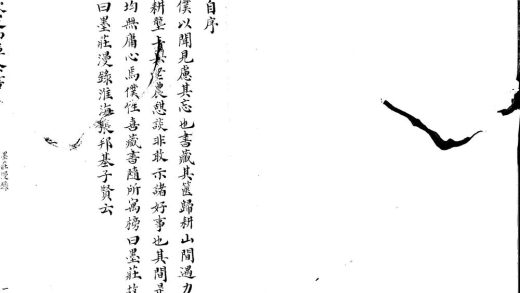 自序
僕以聞見慮其忘也書藏其篋歸耕山間遇力
耕墾上與老農憩談非敢示諸好事也其間是
均無庸心焉僕性喜藏書隨所寓榜曰墨莊故
曰墨莊漫錄淮海張邦基子賢云
墨莊漫錄
一